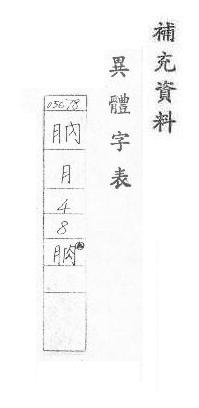 補充資料
異體字表
05678
肭
月
4
8